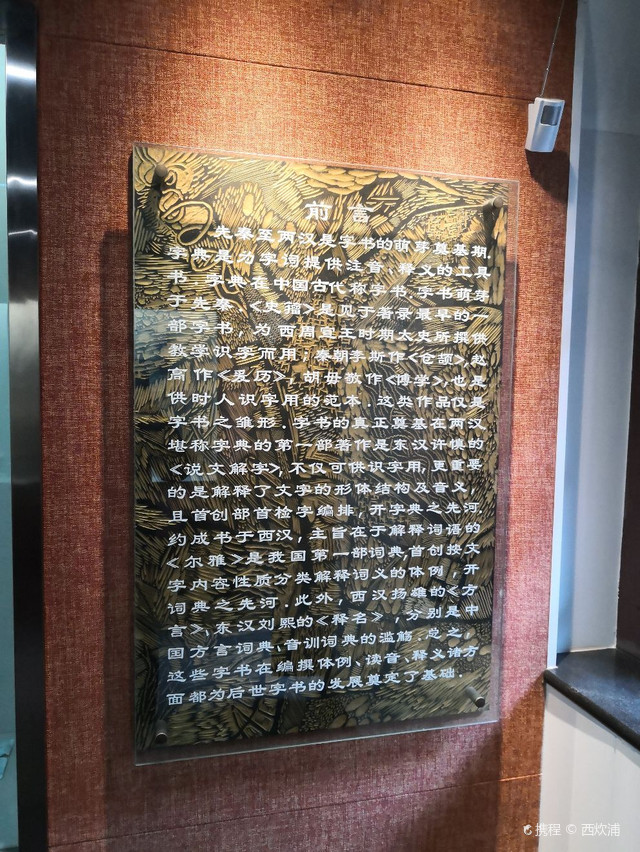 前言
先秦至两汉是字书的萌芽奠基期.
字典是为字词提供注音、释义的工具
书，字典在中国古代称字书.字书萌芽
于先秦，《史籀》是见于著录最早的一
部字书，为西周宣王时期太史所撰供
教学识字而用；秦朝李斯作《仓颉》,赵
高作《爰历》，胡毋敬作《博学》,也是
供时人识字用的范本.这类作品仅是
字书之雏形.字书的真正奠基在两汉.
堪称字典的第一部著作是东汉许慎的
《说文解字》,不仅可供识字用,更重要
的是解释了文字的形体结构及音义，
且首创部首检字编排，开字典之先河.
约成书于西汉，主旨在于解释词语的
《尔雅》是我国第一部词典,首创按文
字内容性质分类解释词义的体例，开
词典之先河.此外，西汉扬雄的《方
言》、东汉刘熙的《释名》，分别是中
国方言词典、音训词典的滥觞.总之，
这些字书在编撰体例、读音、释义诸方
面都为后世字书的发展奠定了基础.
携程 © 西炊浦